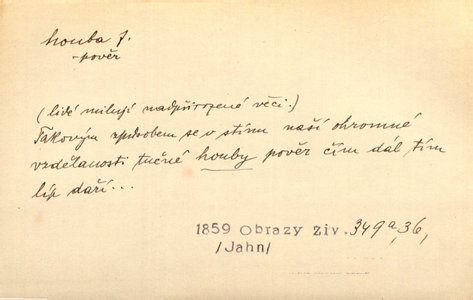 houba f.
-pověr
(lidé milují nadpřirozené věci.)
Takovým způsobem se v stínu naší ohromné
vzdělanosti tučné houby pověr čím dál, tím
líp daří...
1859 Obrazy živ. 349a,36,
/Jahn/